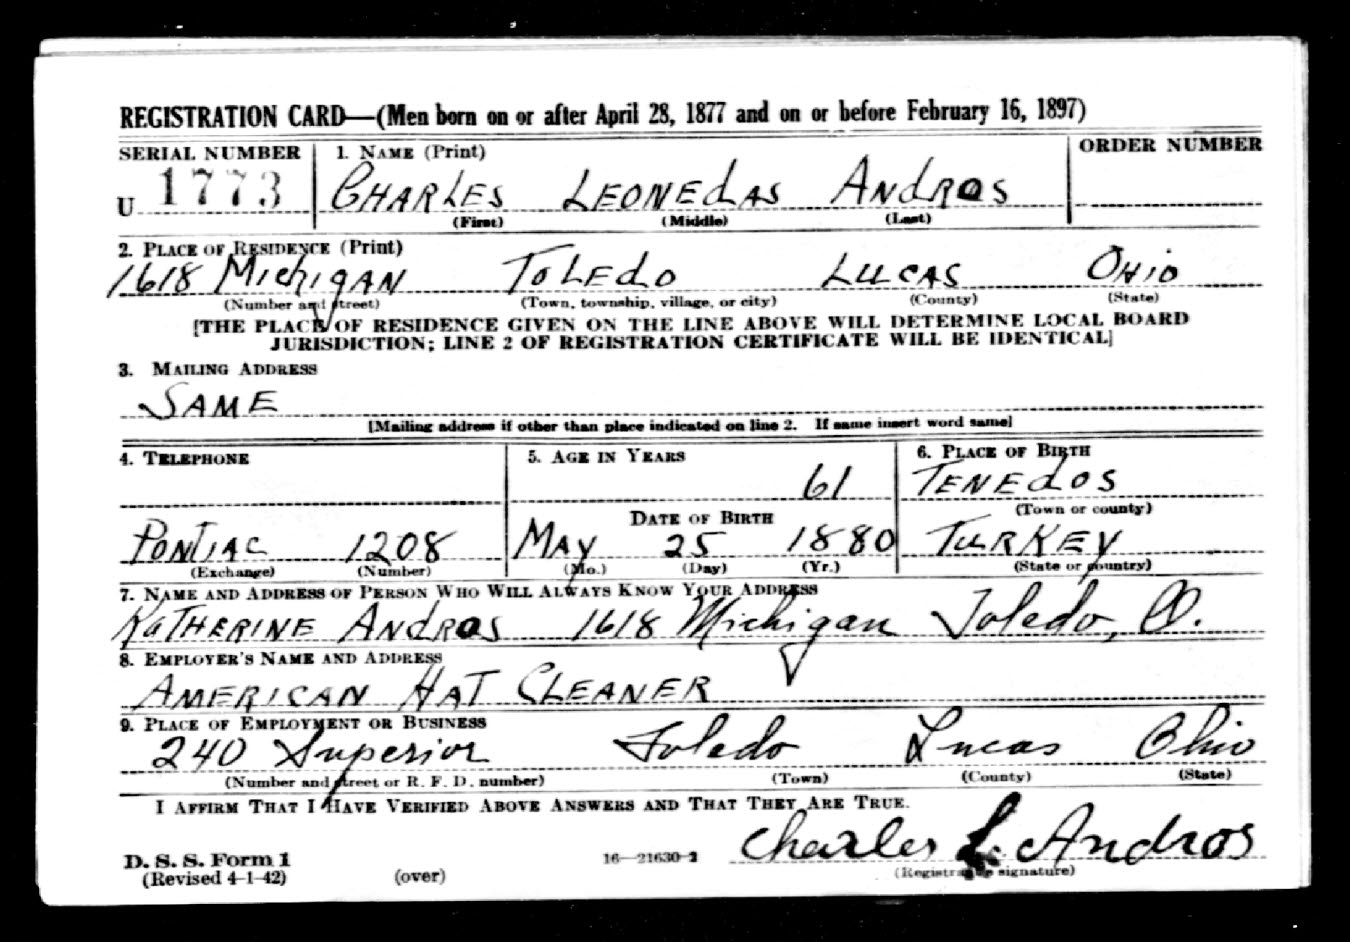 REGISTRATION CARD—(Men born on or after April 28, 1877 and on or before February 16, 1897)
SERIAL NUMBER 1. NAME (Print) ORDER NUMBER
U 1773 CHARLES LEONEdAS ANdROS
(First) (Middle) (Last)
2. PLACE OF RESIDENCE (Print)
1618 MICHIGAN TOLEdO LUCAS OHIO
(Number and street) (Town, township, village, or city) (County) (State)
[THE PLACE OF RESIDENCE GIVEN ON THE LINE ABOVE WILL DETERMINE LOCAL BOARD
JURISDICTION; LINE 2 OF REGISTRATION CERTIFICATE WILL BE IDENTICAL]
3. MAILING ADDRESS
SAME
[Mailing address if other than place indicated on line 2. If same insert word same]
4. TELEPHONE 5. AGE IN YEARS 6. PLACE OF BIRTH
61 TENEdOS
DATE OF BIRTH (Town or county)
PONTIAC 1208 MAY 25 1880 TURKEY
(Exchange) (Number) (Mo.) (Day) (Yr.) (State or country)
7. NAME AND ADDRESS OF PERSON WHO WILL ALWAYS KNOW YOUR ADDRESS
KATHERINE ANdROS 1618 Michigan Toledo, O.
8. EMPLOYER'S NAME AND ADDRESS
AMERICAN HAT CLEANER
9. PLACE OF EMPLOYMENT OR BUSINESS
240 Superior Toledo Lucas Ohio
(Number and street or R. F. D. number) (Town) (County) (State)
I AFFIRM THAT I HAVE VERIFIED ABOVE ANSWERS AND THAT THEY ARE TRUE.
Charles L. Andros
D. S. S. Form 1 16—21630-2 (Registrant's signature)
(Revised 4-1-42) (over)